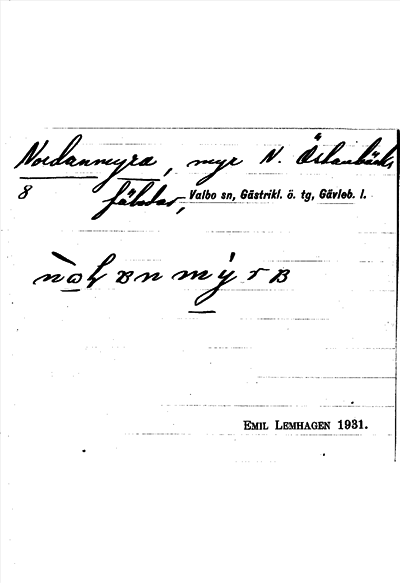 Nordanmyra, myr N. Östanbäcks
8 fäbodar, Valbo sn, Gästrikl. ö. tg, Gävleb. l.
EMIL LEMHAGEN 1931.